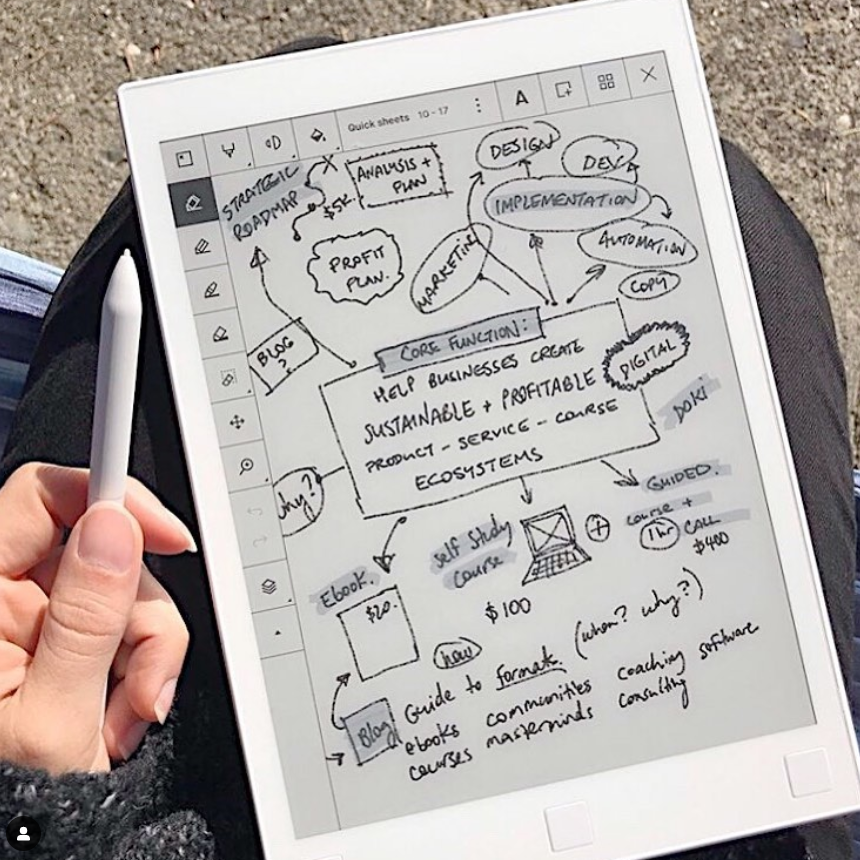 Quick sheets 10-17
A
STRATEGIC
ROADMAP
$5K
ANALYSIS +
PLAN
DESIGN
DEV
IMPLEMENTATION
PROFIT
PLAN.
MARKETING
AUTOMATION
COPY
BLOG
?
CORE FUNCTION:
HELP BUSINESSES CREATE
SUSTAINABLE + PROFITABLE
PRODUCT - SERVICE - COURSE
ECOSYSTEMS
DIGITAL
DOKI
why?
EBOOK.
$20.
Self Study
Course
$100
+
GUIDED.
course +
1hr CALL
$400
how
Blog
Guide to formats (when? why?)
ebooks communities coaching software
courses masterminds consulting